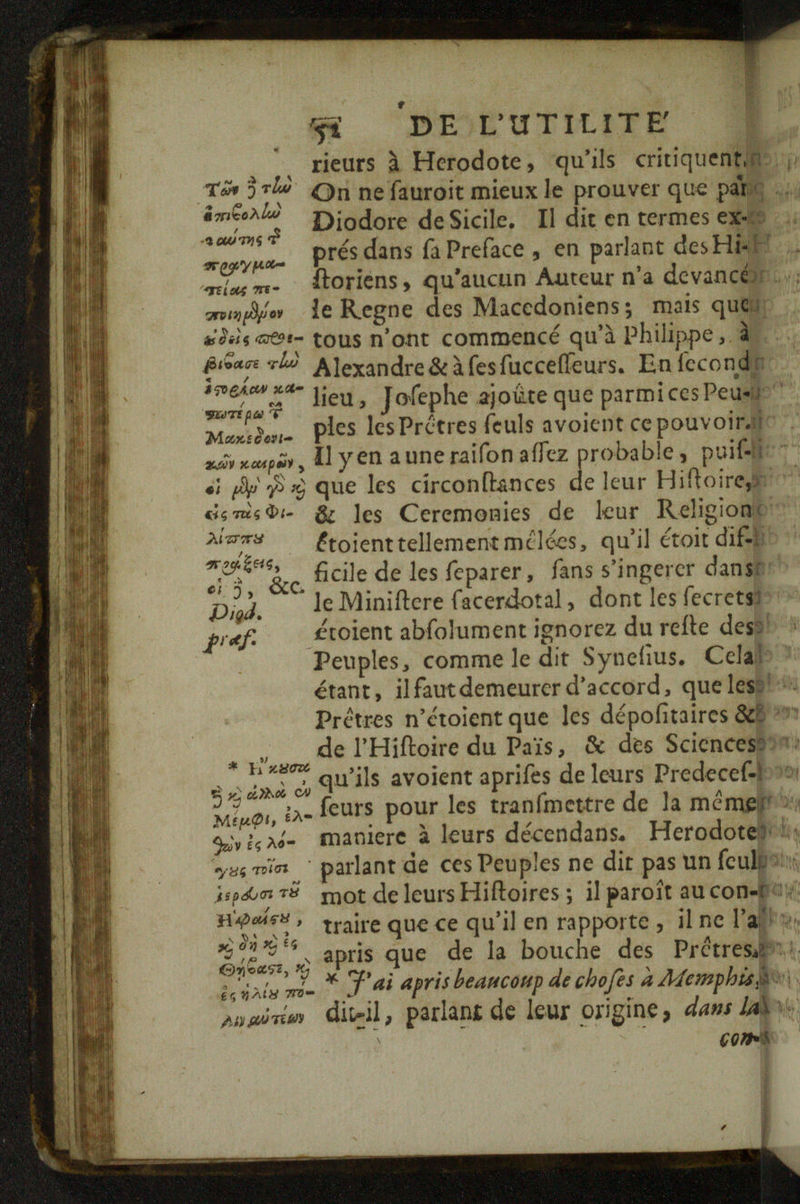 DE L'UTILITE'
rieurs à Herodote, qu'ils critiquent.
On ne ſauroit mieux le prouver que par
Diodore de Sicile. Il dit en termes ex-
prés dans ſa Preface, en parlant des Hi-
ſtoriens, qu'aucun Auteur n'a devancé
le Regne des Macedoniens; mais que
tous n'ont commencé qu'à Philippe, à
Alexandre & à ſes ſucceſſeurs. En ſecond
lieu, Joſephe ajoûte que parmi ces Peu-
ples les Prétres ſeuls avoient ce pouvoir.
Il y en a une raiſon aſſez probable, puiſ-
que les circonſtances de leur Hiſtoire,
& les Ceremonies de leur Religion
étoient tellement mélées, qu'il étoit dif-
ficile de les ſeparer, ſans s'ingerer dans
le Miniſtere ſacerdotal, dont les ſecrets
étoient abſolument ignorez du reſte des
Peuples, comme le dit Syneſius. Cela
étant, il faut demeurer d'accord, que les
Prêtres n'étoient que les dépoſitaires &
de l'Hiſtoire du Païs, & des Sciences
qu'ils avoient apriſes de leurs Predeceſ-
ſeurs pour les tranſmettre de la même
maniere à leurs décendans. Herodote
parlant de ces Peuples ne dit pas un ſeul
mot de leurs Hiſtoires; il paroît au con-
traire que ce qu'il en rapporte, il ne l'a
apris que de la bouche des Prêtres,
* J'ai apris beaucoup de choſes à Memphis,
dit-il, parlant de leur origine, dans la
com-
Τῶν ἢ τὴν
ἐπιβολὴν
πραγμα-
τείας πε-
ποιημένων
βιβασε τὴν
Μακεδονι-
κῶν καιρῶν,
εἰς τὰς Φι-
λίππου
πράξεις,
οἱ ἢ, &c.
Diod.
præf.
* Ἤκουσα
Μέμφι, ἐλ-
θὼν ἐς λό-
γους τοῖσι
ἱερεῦσι τοῦ
Ἡφαίστου,